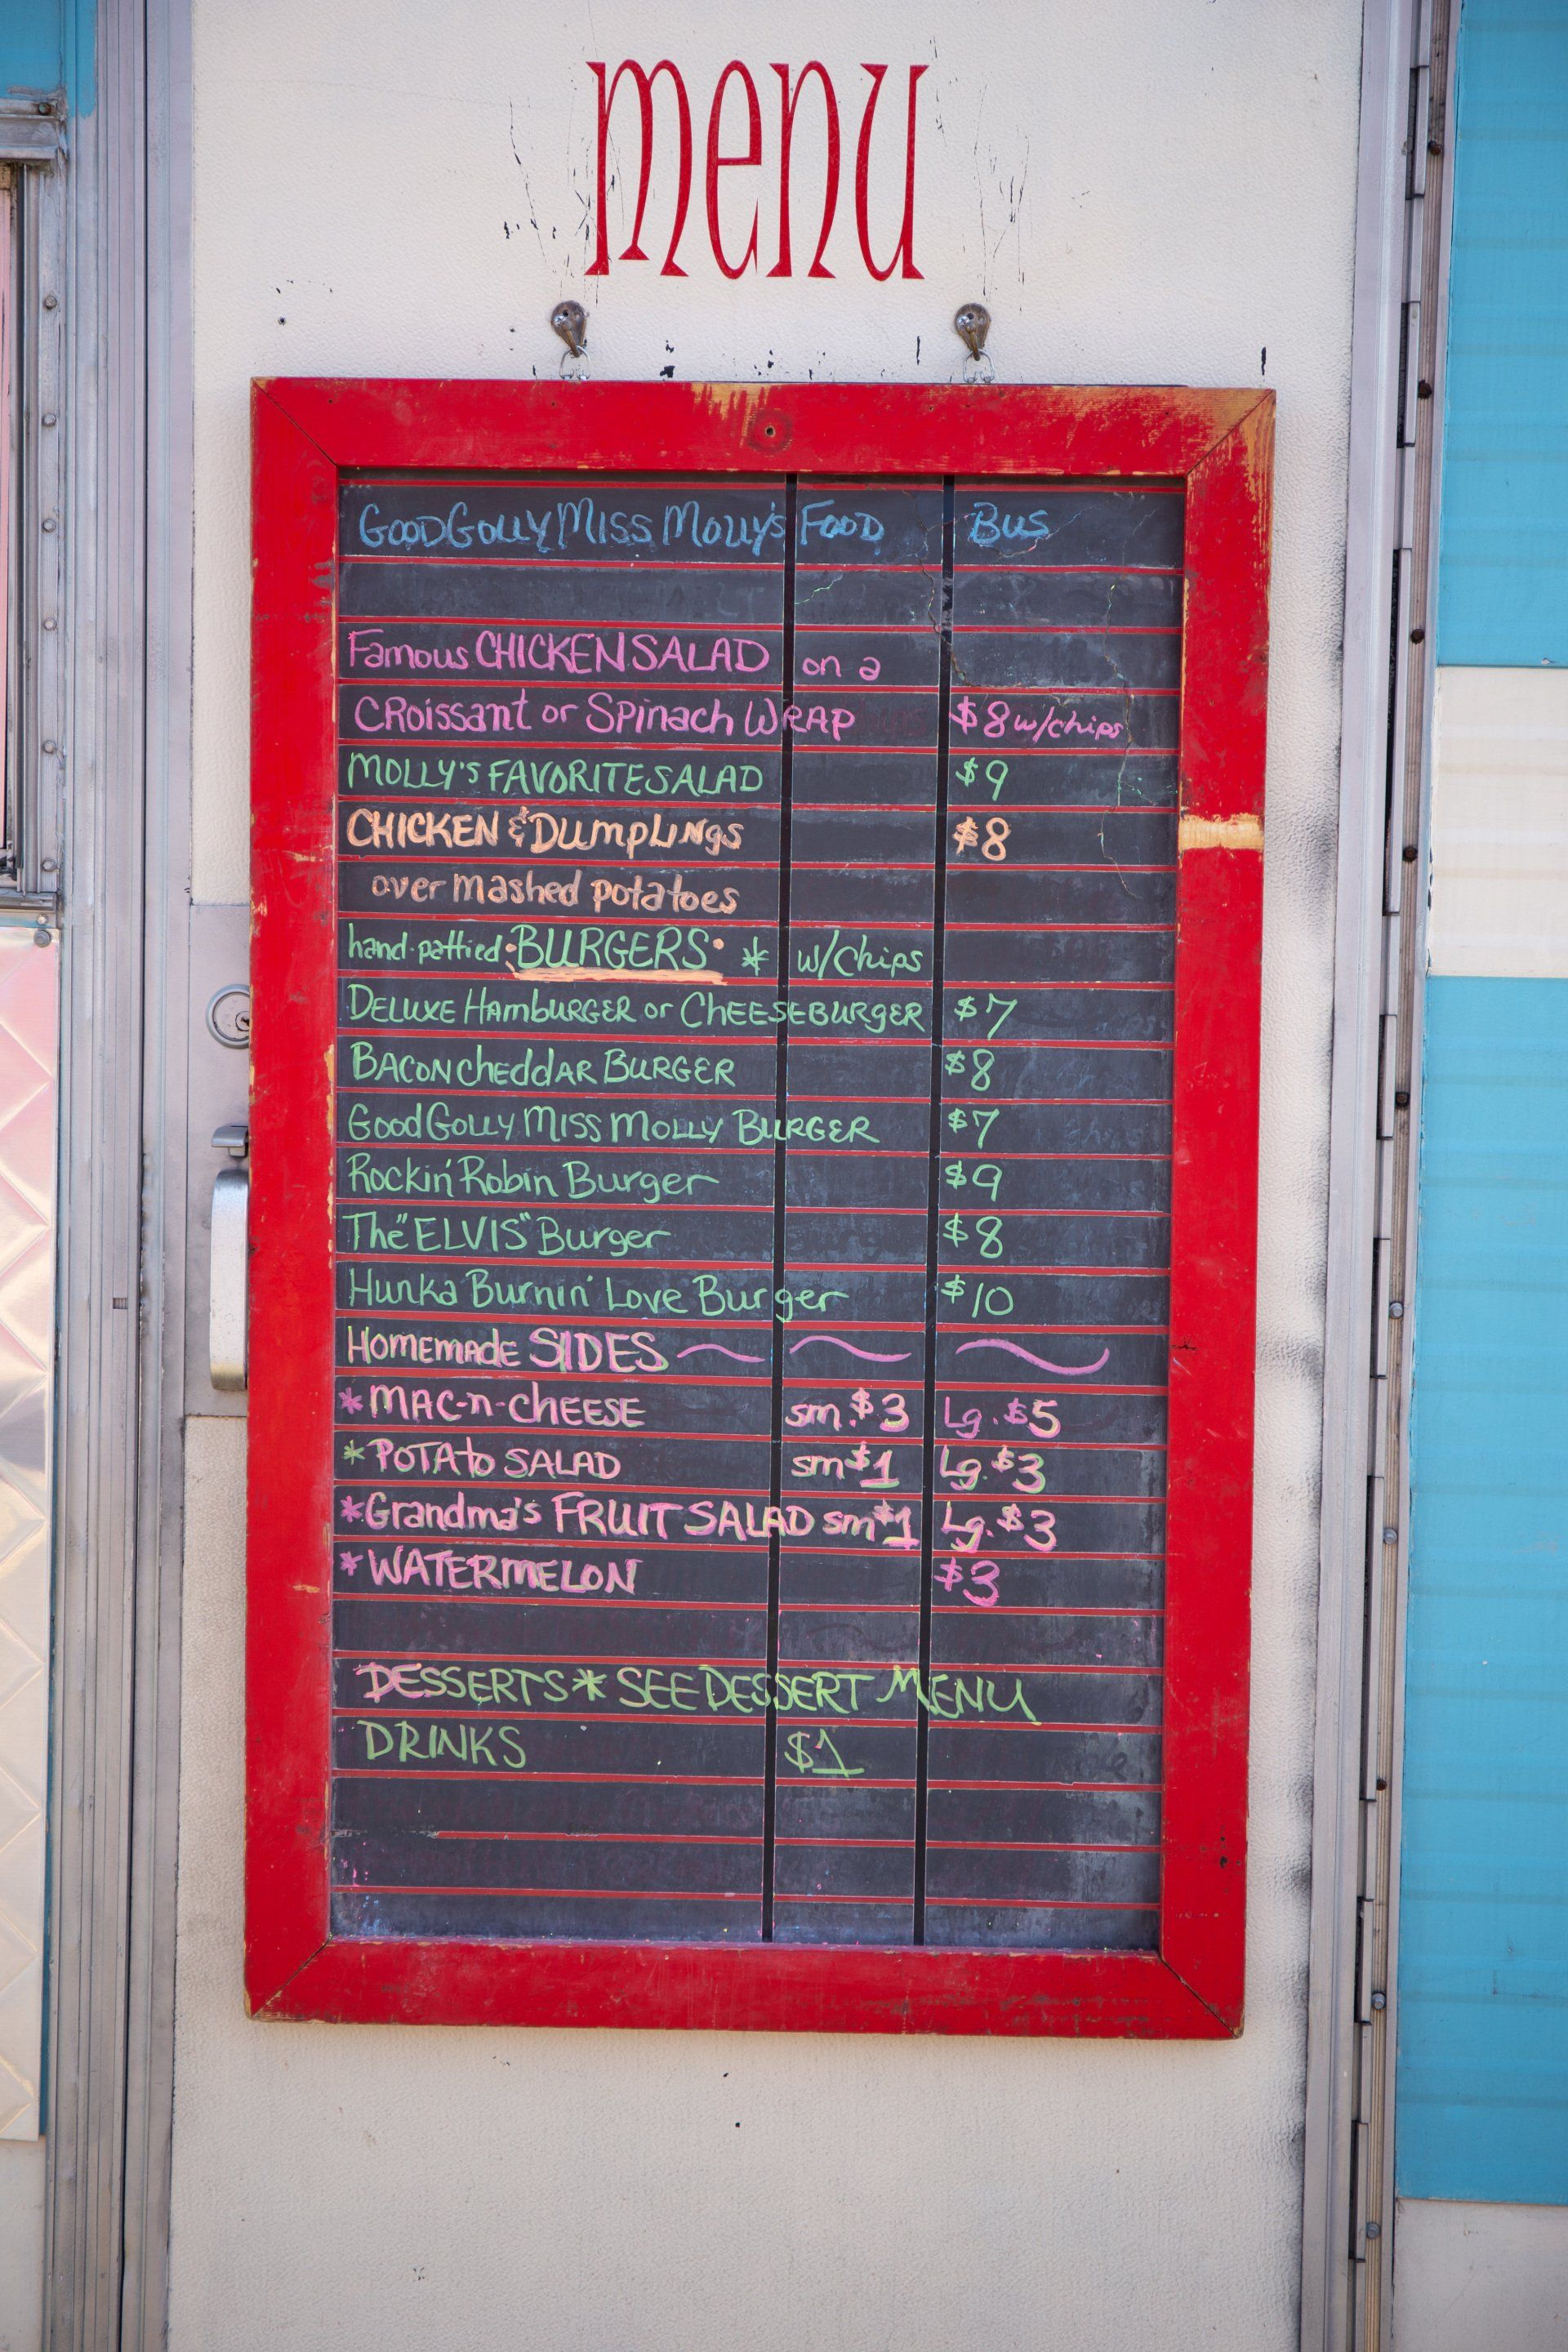 menu
GOOD GOLLY MISS MOLLY'S FOOD BUS
Famous CHICKEN SALAD on a
CROissant or SPinach WRAP $8 w/chips
MOLLY'S FAVORITE SALAD $9
CHICKEN & DUmpLiNgs $8
over mashed potatoes
hand-pattied • BURGERS • * w/chips
DELUXE HAmBURGER or CHEESEBURgER $7
BACON CHeddAR BURGER $8
Good GOLLY MISS MOLLY BURGER $7
Rockin' Robin Burger $9
The "ELVIS" Burger $8
Hunka Burnin' Love Burger $10
HOMEMADE SIDES
*MAC-n-CHEESE sm. $3 Lg. $5
*POTAto SALAD sm $1 Lg. $3
*Grandma's FRUIT SALAD sm $1 Lg. $3
*WATERMELON $3
DESSERTS * SEE DESSERT MENU
DRINKS $1